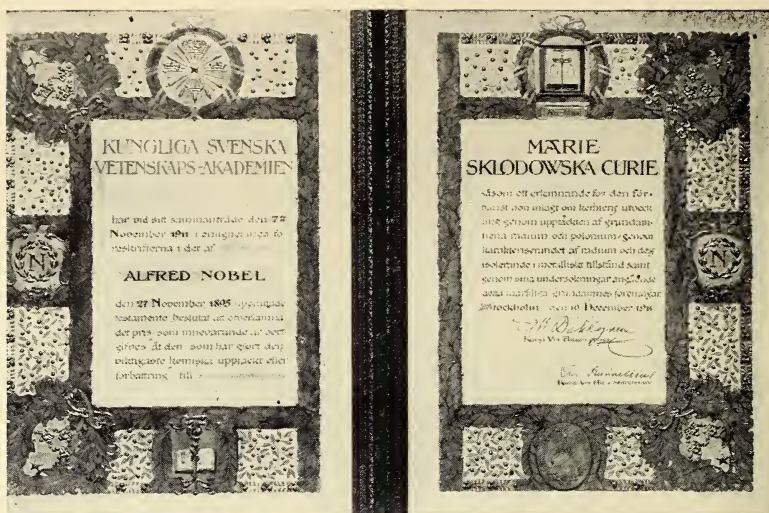 KUNGLIGA SVENSKA
VETENSKAPS-AKADEMIEN
har vid sitt sammanträde den 7de
November 1911 i enlighet med fö
reskrifterna i det af
ALFRED NOBEL
den 27 November 1895 upprättade
testamente beslutat att öfverlämna
det pris som innevarande år bort
gifves åt den som har gjort den
viktigaste kemiska upptäckt eller
förbättring till
N
MARIE
SKLODOWSKA CURIE
såsom ett erkännande för den för-
tjänst hon inlagt om kemiens utveck
ling genom upptäckten af grundäm-
nena radium och polonium genom
karakteriserandet af radium och dess
isolerande i metalliskt tillstånd samt
genom sina undersökningar angående
detta märkliga grundämnes föreningar
Stockholm den 10 December 1911
N